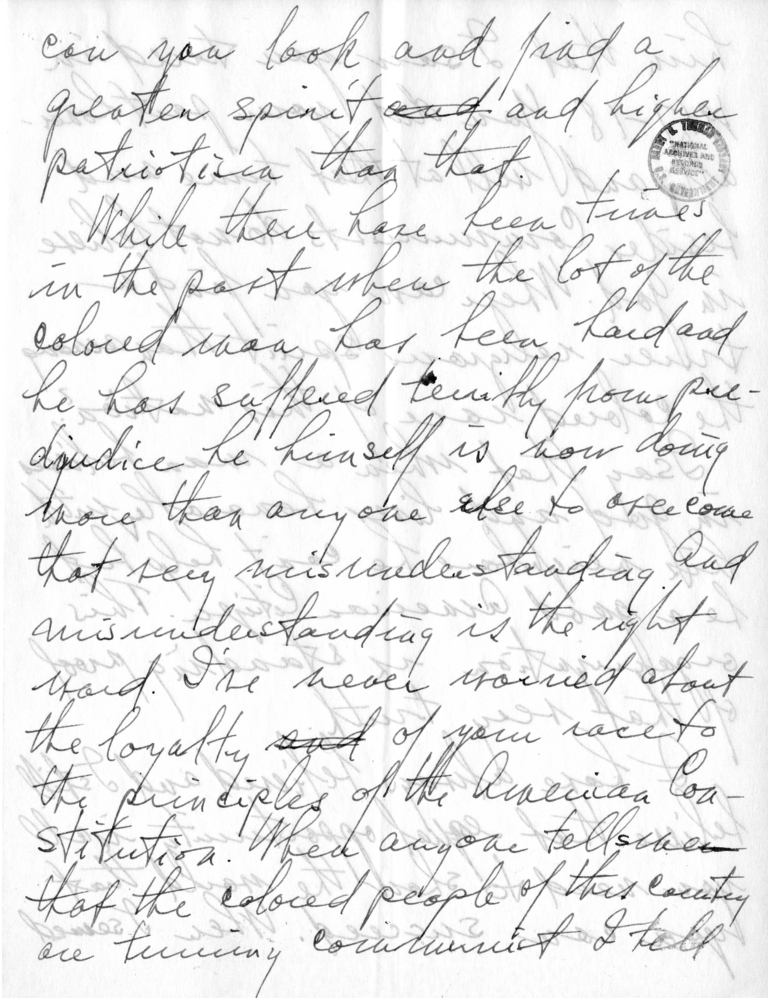 can you look and find a
greater spirit and and higher
patriotism than that.
While there have been times
in the past when the lot of the
colored man has been hard and
he has suffered terribly from pre-
djudice he himself is now doing
more than anyone else to overcome
that very misunderstanding. And
misunderstanding is the right
word. I've never worried about
the loyalty and of your race to
the principles of the American Con-
stitution. When anyone tells me
that the colored people of this country
are turning communist I tell
"NATIONAL
ARCHIVES AND
RECORDS
SERVICE"